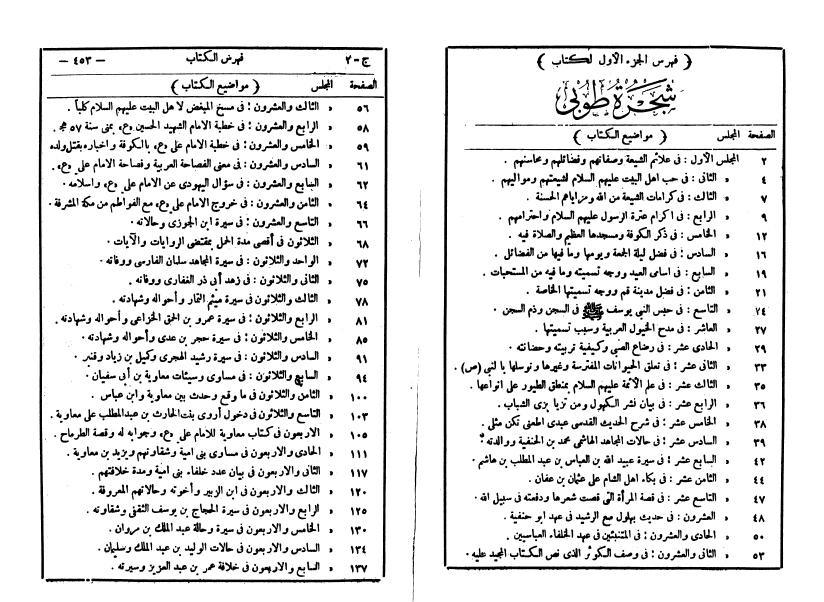 ( فهرس الجزء الاول لكتاب )
شجرة طوبى
الصفحة المجلس ( مواضيع الكتاب )
٢ المجلس الأول : فى علائم الشيعة وصفاتهم وفضائلهم ومحاسنهم .
٤ » الثانى : فى حب اهل البيت عليهم السلام لشيعتهم ومواليهم .
٧ » الثالث : فى كرامات الشيعة من الله ومزاياهم الحسنة .
٩ » الرابع : فى اكرام عترة الرسول عليهم السلام واحترامهم .
١٢ » الخامس : فى ذكر الكوفة ومسجدها العظيم والصلاة فيه .
١٦ » السادس : فى فضل ليلة الجمعة ويومها وما فيها من الفضائل .
١٩ » السابع : فى اسامى العيد ووجه تسميته وما فيه من المستحبات .
٢١ » الثامن : فى فضل مدينة قم ووجه تسميتها الخاصة .
٢٤ » التاسع : فى حبس النبي يوسف ﷺ فى السجن وذم السجن .
٢٧ » العاشر : فى مدح الخيول العربية وسبب تسميتها .
٢٩ » الحادى عشر : فى رضاع الصبى وكيفية تربيته وحضانته .
٣٣ » الثانى عشر : فى تعلق الحيوانات المفترسة وغيرها وتوسلها بالنبي (ص) .
٣٥ » الثالث عشر : فى علم الأئمة عليهم السلام بمنطق الطيور على انواعها .
٣٦ » الرابع عشر : فى بيان نشر الكهول ومن تزيا بزى الشباب .
٣٨ » الخامس عشر : فى شرح الحديث القدسى عبدى اطعنى تكن مثلى .
٣٩ » السادس عشر : فى حالات المجاهد الهاشمى محمد بن الحنفية ووالدته
٤٢ » السابع عشر : فى سيرة عبيد الله بن العباس بن عبد المطلب بن هاشم
٤٤ » الثامن عشر : فى بكاء اهل الشام على عثمان بن عفان .
٤٧ » التاسع عشر : فى قصة المرأة التى قصت شعرها ودفعته فى سبيل الله .
٤٨ » العشرون : فى حديث بهلول مع الرشيد فى عهد ابو حنفية .
٥٠ » الحادى والعشرون : فى المتنبئين فى عهد الخلفاء العباسيين .
٥٣ » الثانى والعشرون : فى وصف الكوثر الذى نص الكتاب المجيد عليه .
ج - ٢ فهرض الكتاب - ٤٥٣ -
الصفحة المجلس ( مواضيع الكتاب )
٥٦ » الثالث والعشرون : فى مسخ المبغض لاهل البيت عليهم السلام كلباً .
٥٨ » الرابع والعشرون : فى خطبة الامام الشهيد الحسين «ع» بمنى سنة ٥٧ هج .
٥٩ » الخامس والعشرون : فى خطبة الامام على «ع» بالكوفة واخباره بقتل ولده
٦١ » السادس والعشرون : فى معنى الفصاحة العربية وفصاحة الامام على «ع» .
٦٢ » السابع والعشرون : فى سؤال اليهودى عن الامام على «ع» واسلامه .
٦٤ » الثامن والعشرون : فى خروج الامام على «ع» مع الفواطم من مكة المشرفة .
٦٦ » التاسع والعشرون : فى سيرة ابن الجوزى وحالاته .
٦٨ » الثلاثون فى أقصى مدة الحمل بمقتضى الروايات والآيات .
٧٢ » الواحد والثلاثون : فى سيرة المجاهد سلمان الفارسى ووفاته .
٧٥ » الثانى والثلاثون : فى زهد أبى ذر الغفارى ووفاته .
٧٨ » الثالث والثلاثون : فى سيرة ميثم التمار وأحواله وشهادته .
٨١ » الرابع والثلاثون : فى سيرة عمرو بن الحمق الخزاعى وأحواله وشهادته .
٨٥ » الخامس والثلاثون : فى سيرة حجر بن عدى وأحواله وشهادته .
٩١ » السادس والثلاثون : فى سيرة رشيد الهجرى وكميل بن زياد وقنبر .
٩٤ » السابع والثلاثون : فى مساوى وسيئات معاوية بن أبى سفيان .
١٠٠ » الثامن والثلاثون : فى ما وقع وحدث بين معاوية وابن عباس .
١٠٣ » التاسع والثلاثون فى دخول أروى بنت الحارث بن عبد المطلب على معاوية .
١٠٥ » الاربعون فى كتاب معاوية للامام على «ع» وجوابه له وقصة الطرماح .
١١١ » الحادى والاربعون فى مساوى بنى امية وشقاوتهم ويزيد بن معاوية .
١١٧ » الثانى والاربعون فى بيان عدد خلفاء بنى امية ومدة خلافتهم .
١٢٠ » الثالث والاربعون فى ابن الزبير وأخوته وحالاتهم المعروفة .
١٢٥ » الرابع والاربعون فى سيرة الحجاج بن يوسف الثقفى وشقاوته .
١٣٠ » الخامس والاربعون فى سيرة وحالة عبد الملك بن مروان .
١٣٤ » السادس والاربعون فى حالات الوليد بن عبد الملك وسليمان .
١٣٧ » السابع والاربعون فى خلافة عمر بن عبد العزيز وسيرته .